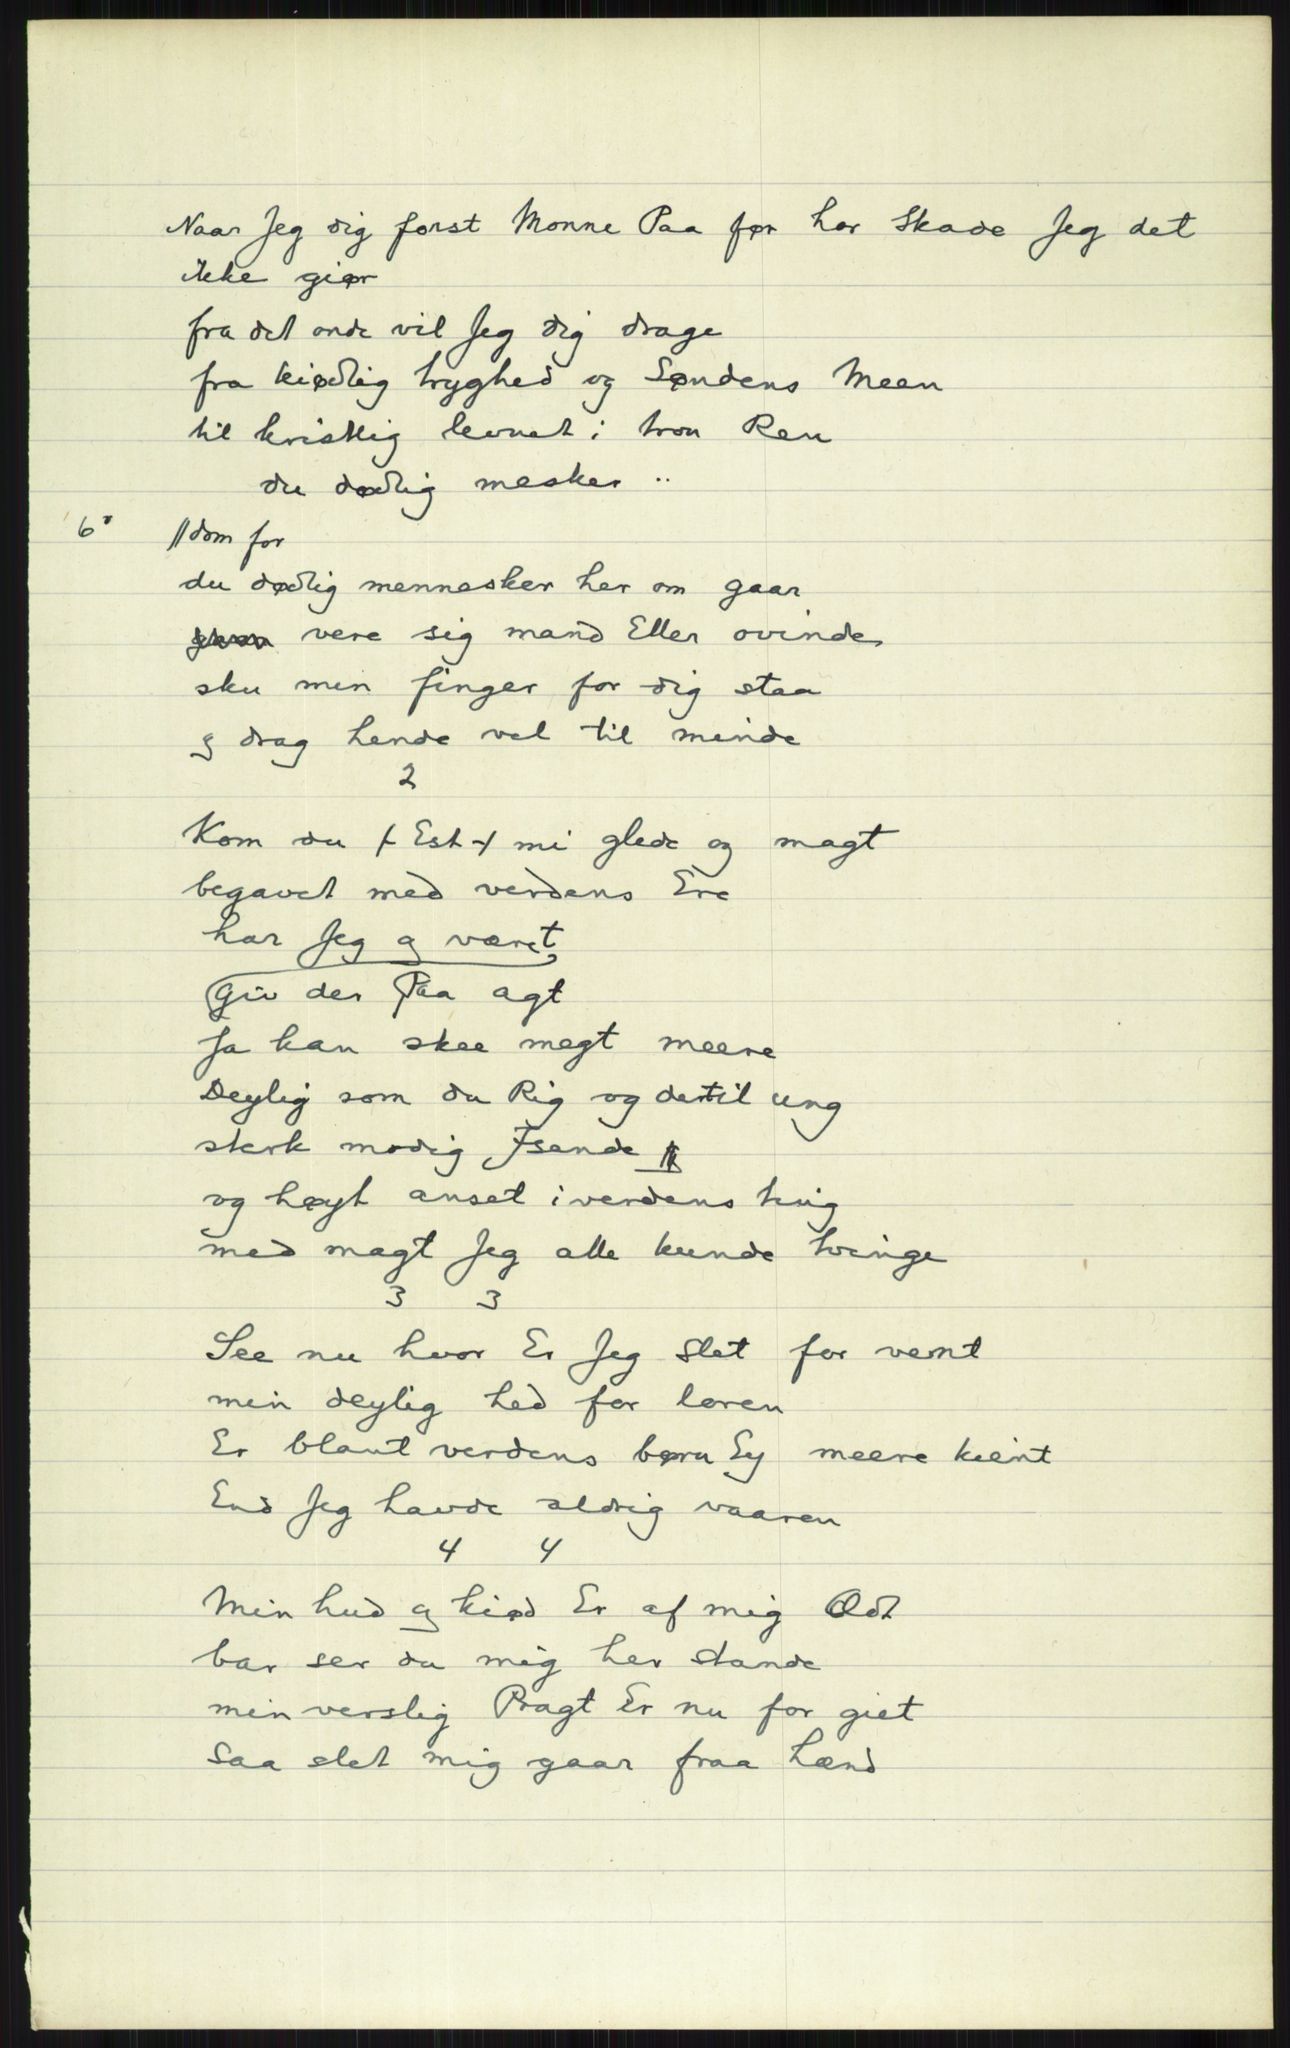 Naar Jeg dig først Monne Paa før har Skade Jeg det
ikke giør
fra det onde vil Jeg dig drage
fra kiødlig tryghed og Søndens Meen
til kristlig levnet i tron Ren
du dødlig mesker ..
6° // dom for
du dødlig mennesker her om gaar
vere sig mand Eller ovinde
sku min finger for dig staa
og drag hende vel til minde
2
Kom du / Est / mi glede og magt
begavet med verdens Ere
har Jeg og været
Giv der Paa agt
Ja kan skee megt meere
Deylig som du Rig og dertil ung
sterk modig Isende //
og høyt anset i verdens ting
med magt Jeg alle kunde tvinge
3 3
See nu hvor Er Jeg Slet for vent
min deylig hed for loren
Er blant verdens børn Ey meere kient
End Jeg havde aldrig vaaren
4 4
Min hud og kiød Er af mig Ædt
bar ser du mig her stande
min verslig Pragt Er nu for giet
Saa slet mig gaar fraa hænd